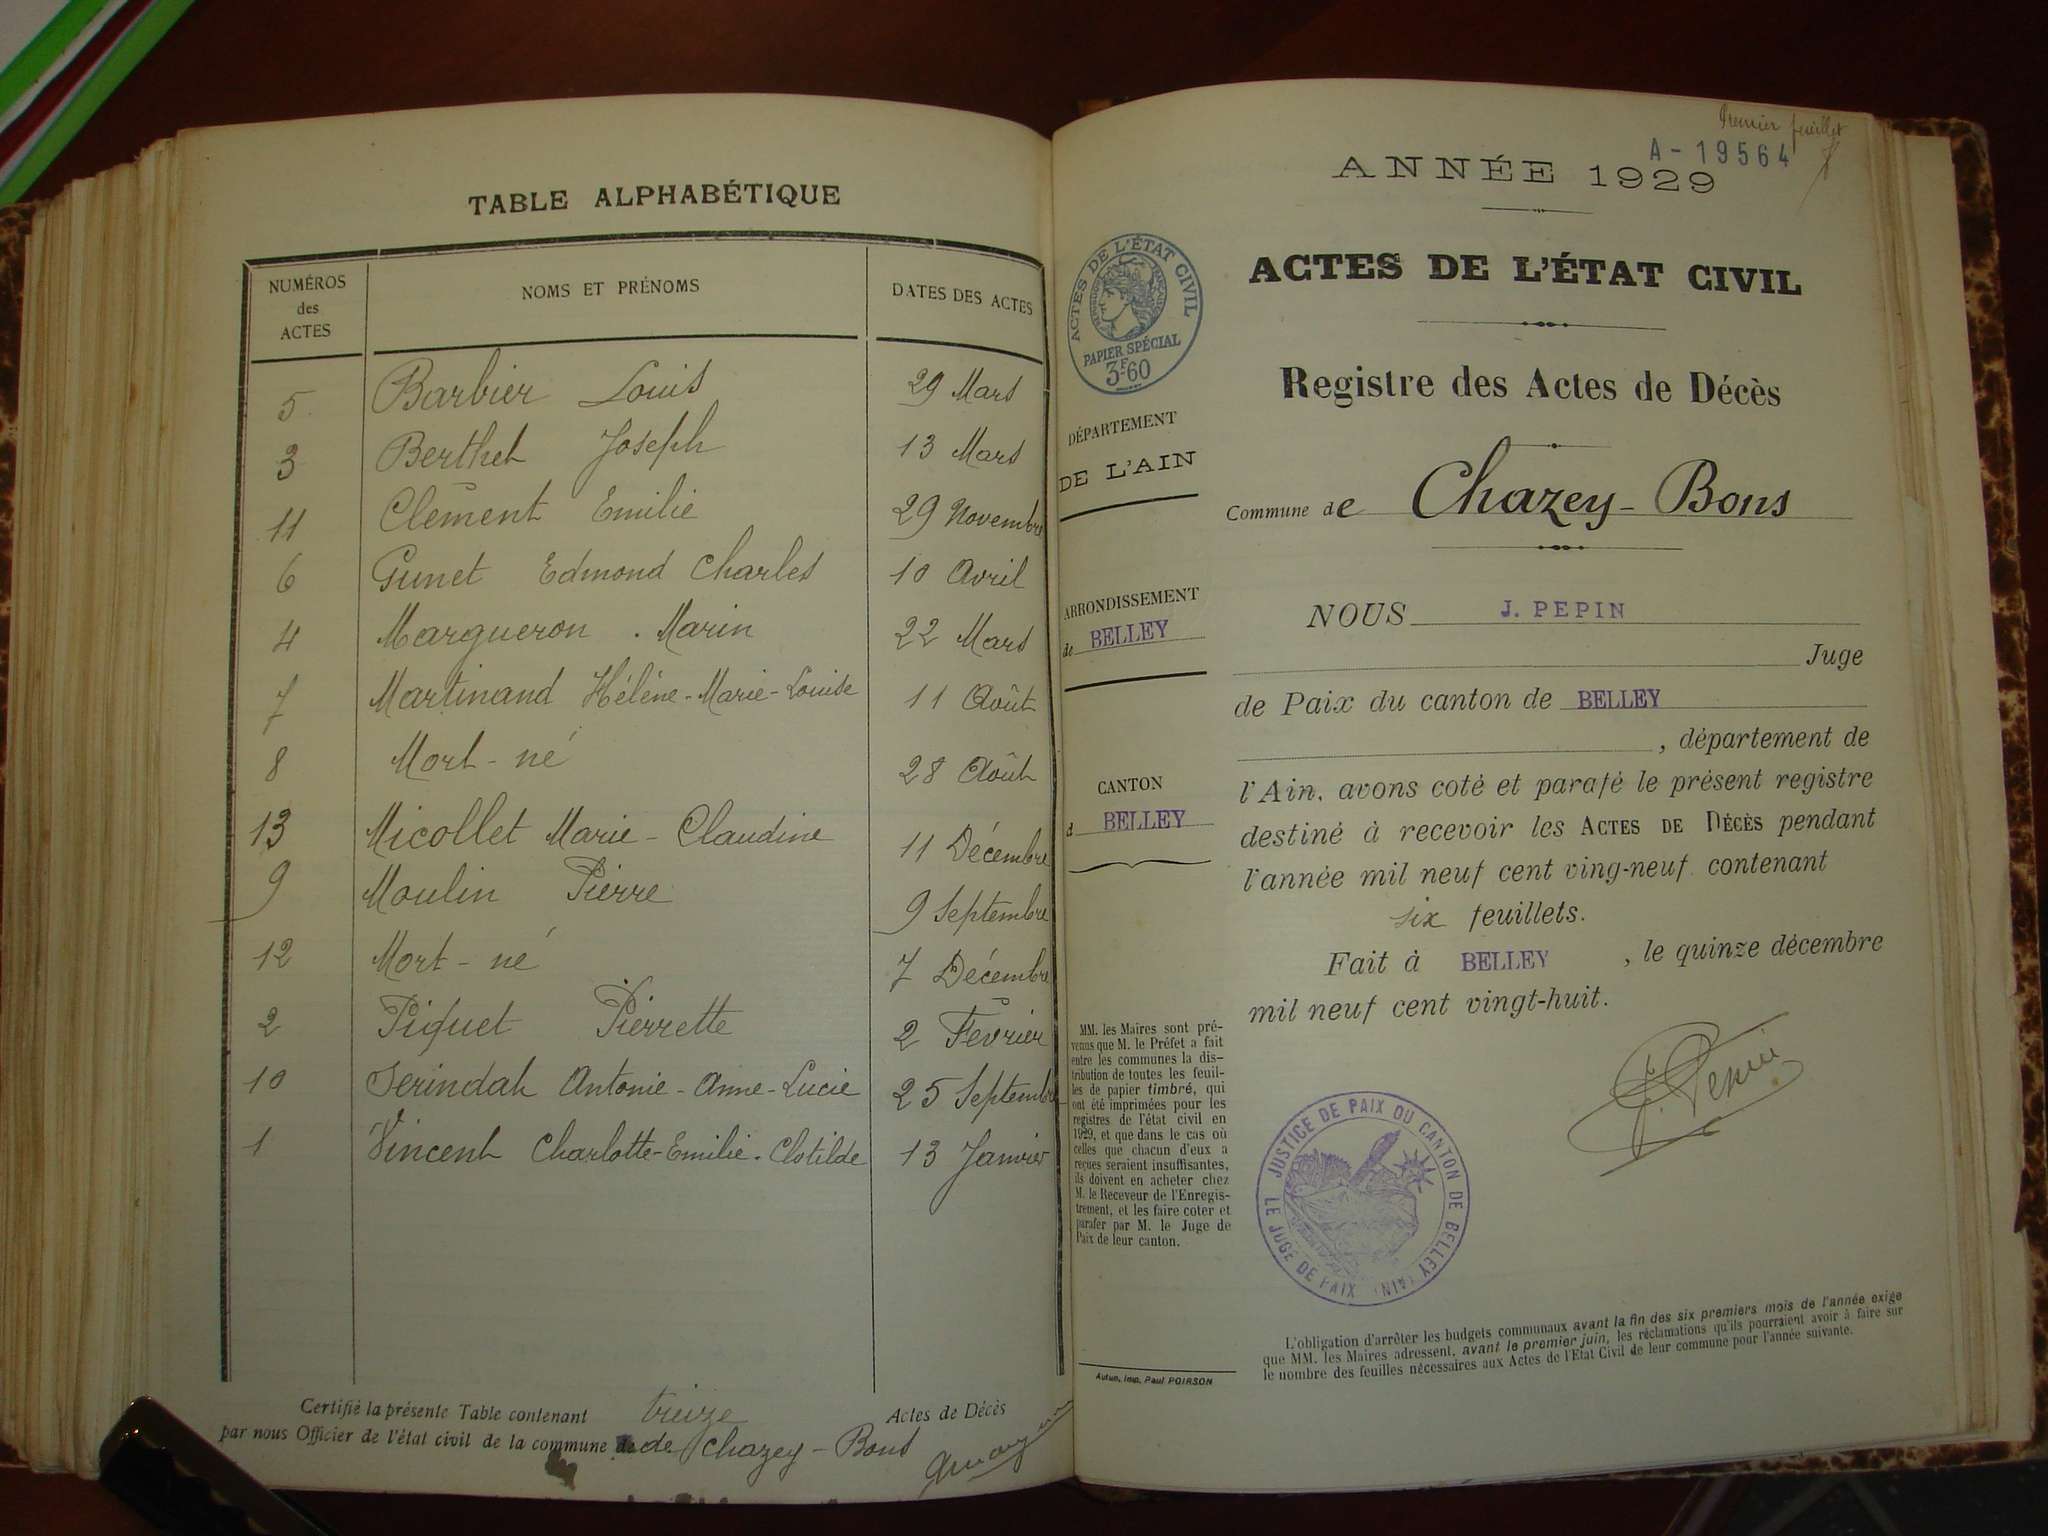 TABLE ALPHABÉTIQUE
NUMÉROS des ACTES NOMS ET PRÉNOMS DATES DES ACTES
5 Barbier Louis 29 Mars
3 Berthet Joseph 13 Mars
11 Clément Emilie 29 Novembre
6 Gunet Edmond Charles 10 Avril
4 Margueron . Marin 22 Mars
7 Martinand Hélène-Marie-Louise 11 Août
8 Mort-né 28 Août
13 Micollet Marie-Claudine 11 Décembre
9 Moulin Pierre 9 Septembre
12 Mort-né 7 Décembre
2 Piquet Pierrette 2 Février
10 Serindat Antonie-Anne-Lucie 25 Septembre
1 Vincent Charlotte-Emilie-Clotilde 13 Janvier
Certifié la présente Table contenant treize Actes de Décès
par nous Officier de l'état civil de la commune de Chazey-Bons
Premier feuillet
A-19564
ANNÉE 1929
ACTES DE L'ÉTAT CIVIL
Registre des Actes de Décès
Commune de Chazey-Bons
NOUS J. PEPIN
Juge
de Paix du canton de BELLEY
, département de
l'Ain, avons coté et parafé le présent registre
destiné à recevoir les ACTES DE DÉCÈS pendant
l'année mil neuf cent ving-neuf contenant
six feuillets.
Fait à BELLEY , le quinze décembre
mil neuf cent vingt-huit.
J. Pepin
ACTES DE L'ÉTAT CIVIL
PAPIER SPÉCIAL
3F60
DÉPARTEMENT
DE L'AIN
ARRONDISSEMENT
de BELLEY
CANTON
d BELLEY
MM. les Maires sont pré-
venus que M. le Préfet a fait
entre les communes la dis-
tribution de toutes les feuil-
les de papier timbré, qui
ont été imprimées pour les
registres de l'état civil en
1929, et que dans le cas où
celles que chacun d'eux a
reçues seraient insuffisantes,
ils doivent en acheter chez
M. le Receveur de l'Enregis-
trement, et les faire coter et
parafer par M. le Juge de
Paix de leur canton.
Autun, imp. Paul POIRSON
JUSTICE DE PAIX DU CANTON DE BELLEY (AIN)
LE JUGE DE PAIX
L'obligation d'arrêter les budgets communaux avant la fin des six premiers mois de l'année exige
que MM. les Maires adressent, avant le premier juin, les réclamations qu'ils pourraient avoir à faire sur
le nombre des feuilles nécessaires aux Actes de l'Etat Civil de leur commune pour l'année suivante.